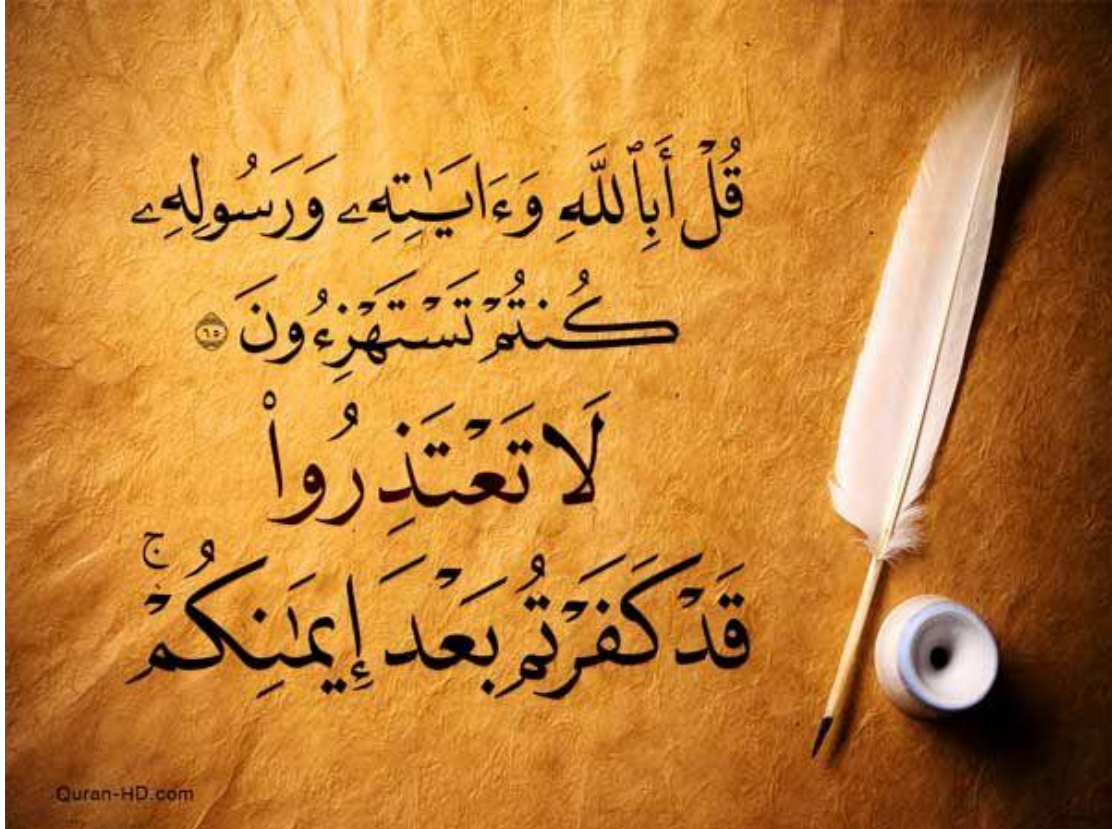 قُلْ أَبِٱللَّهِ وَءَايَـٰتِهِۦ وَرَسُولِهِۦ
كُنتُمْ تَسْتَهْزِءُونَ ٦٥
لَا تَعْتَذِرُوا۟
قَدْ كَفَرْتُم بَعْدَ إِيمَـٰنِكُمْ ۚ
Quran-HD.com